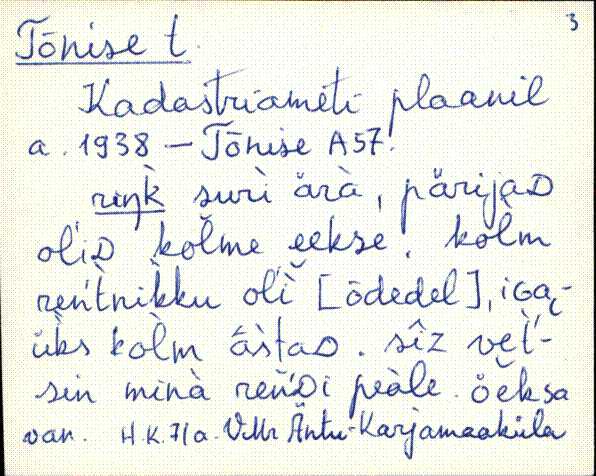 3
Tõnise t.
Kadastriameti plaanil
a. 1938 – Tõnise A57.
riŋ̀k̀ surì ärà, pärijaD
ol'iD kolme eekse. kolm
ren't̀nikku ol'i [õdedel], iGa-
üks kolm ást̀aD. sîz vet̀'-
sin minà ren'Di peàle. öeksa
van. H.K. 71a. V.Mr Äntu-Karjamaaküla